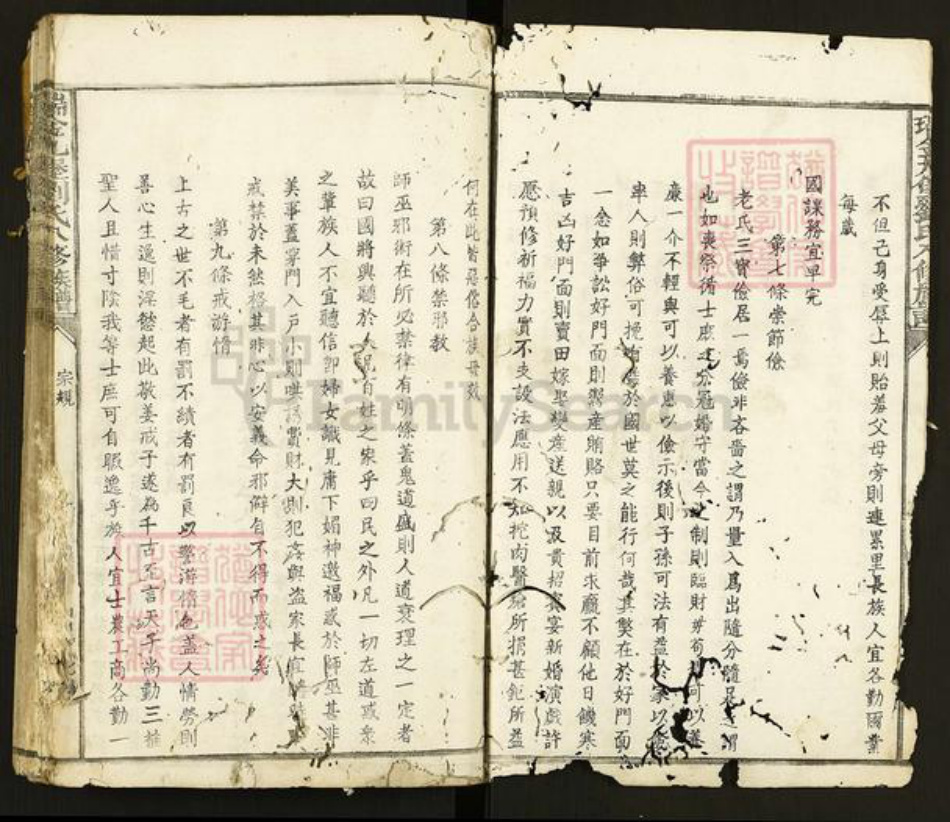 不但己身受辱上則貽羞父母旁則連累里長族人宜各勤國業
每歲
國課務宜早完
第七條崇節儉
老氏三寶儉居一焉儉非吝嗇之謂乃量入為出隨分隨足之謂
也如喪祭循士庶之分冠婚守當今之制則臨財毋苟可以養
廉一介不輕與可以養惠以儉示後則子孫可法有益於家以儉
率人則弊俗可挽有益於國世莫之能行何哉其弊在於好門面
一念如爭訟好門面則鬻產賄賂只要目前求贏不顧他日饑寒
吉凶好門面則賣田嫁娶變產送親以及貴招賓宴新婚演戲許
愿預修祈福力實不支設法應用不知挖肉醫瘡所損甚鉅所益
何在此皆惡俗合族毋效
第八條禁邪教
師巫邪術在所必禁律有明條蓋鬼道盛則人道衰理之一定者
故曰國將興聽於人況百姓之家乎四民之外凡一切左道惑衆
之輩族人不宜聽信卽婦女識見庸下媚神邀福惑於師巫甚非
美事蓋穿門入戶小則哄誘貲財大則犯姦與盜家長宜
戒禁於未然格其非心以安義命邪僻自不得而惑之矣
第九條戒游惰
上古之世不毛者有罰不績者有罰良以警游惰也蓋人情勞則
善心生逸則淫慾起此敬姜戒子遂為千古至言天子尚勤三推
聖人且惜寸陰我等士庶可自暇逸乎族人宜士農工商各勤一
瑞金 劉氏八修族譜
家規
FamilySearch